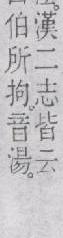 漢二志皆云
伯所拘音湯